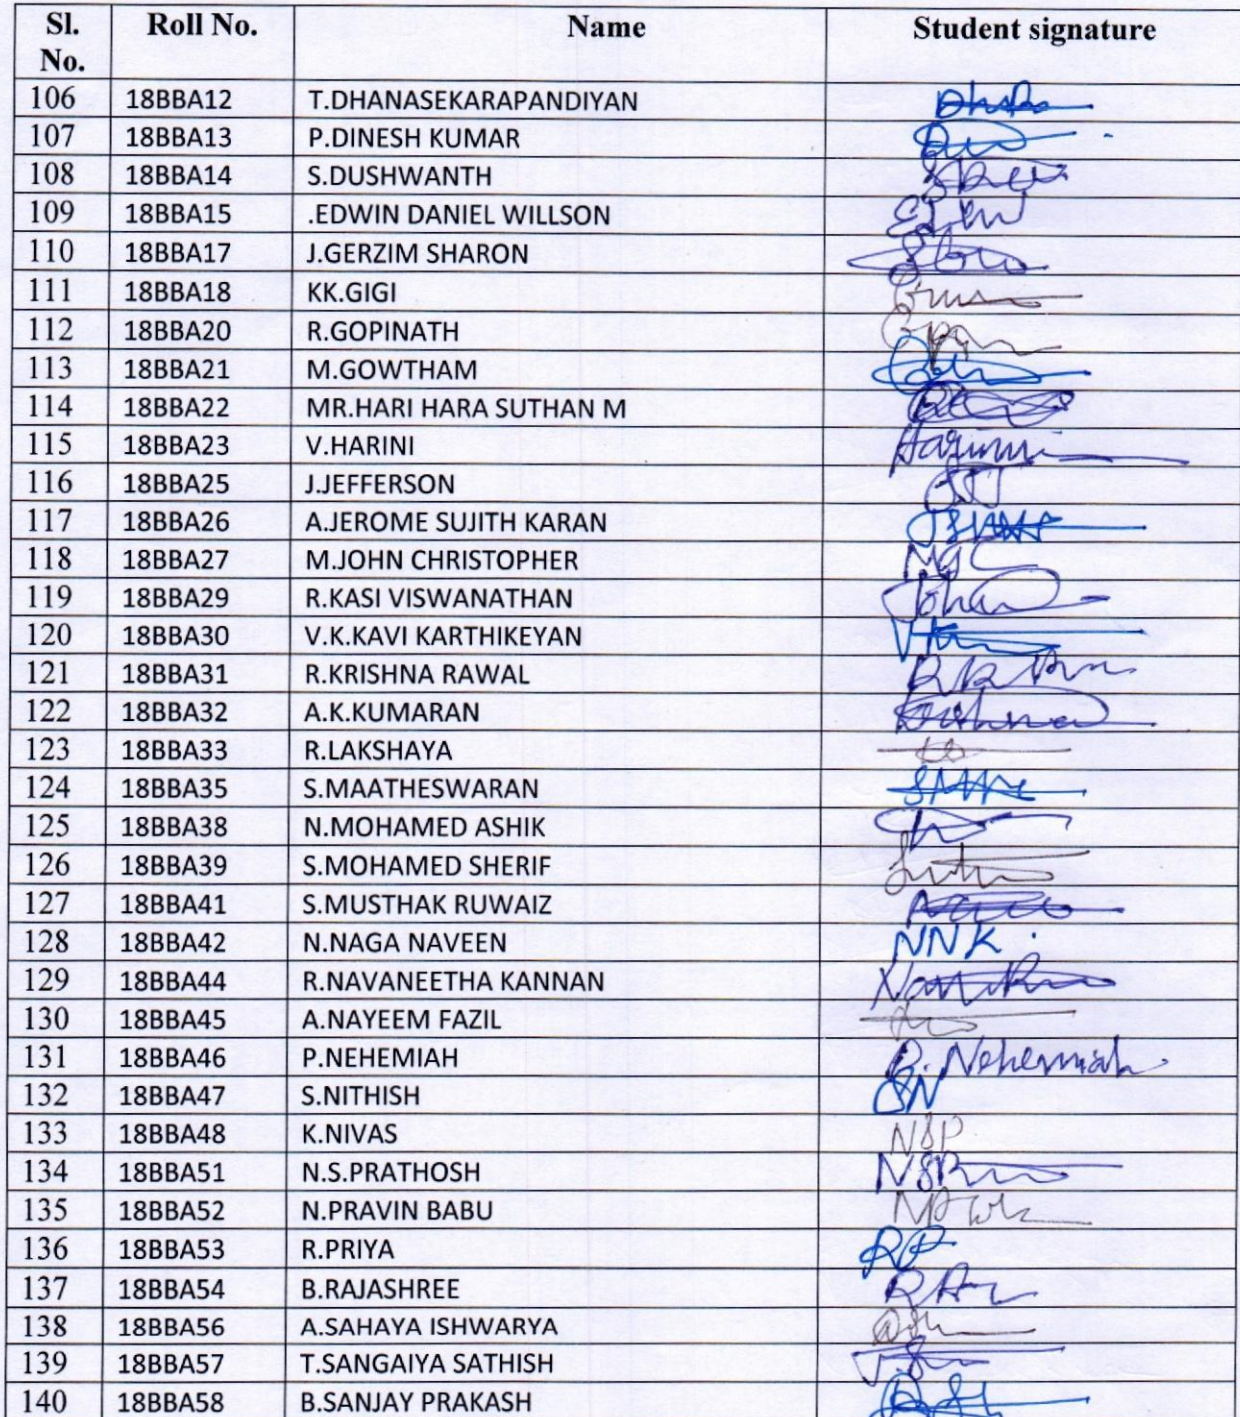 Sl. No. Roll No. Name Student signature
106 18BBA12 T.DHANASEKARAPANDIYAN
107 18BBA13 P.DINESH KUMAR
108 18BBA14 S.DUSHWANTH
109 18BBA15 .EDWIN DANIEL WILLSON
110 18BBA17 J.GERZIM SHARON
111 18BBA18 KK.GIGI
112 18BBA20 R.GOPINATH
113 18BBA21 M.GOWTHAM
114 18BBA22 MR.HARI HARA SUTHAN M
115 18BBA23 V.HARINI Harini
116 18BBA25 J.JEFFERSON
117 18BBA26 A.JEROME SUJITH KARAN
118 18BBA27 M.JOHN CHRISTOPHER MJC
119 18BBA29 R.KASI VISWANATHAN
120 18BBA30 V.K.KAVI KARTHIKEYAN
121 18BBA31 R.KRISHNA RAWAL
122 18BBA32 A.K.KUMARAN
123 18BBA33 R.LAKSHAYA
124 18BBA35 S.MAATHESWARAN
125 18BBA38 N.MOHAMED ASHIK
126 18BBA39 S.MOHAMED SHERIF
127 18BBA41 S.MUSTHAK RUWAIZ
128 18BBA42 N.NAGA NAVEEN NNK.
129 18BBA44 R.NAVANEETHA KANNAN
130 18BBA45 A.NAYEEM FAZIL
131 18BBA46 P.NEHEMIAH P. Nehemiah
132 18BBA47 S.NITHISH SN
133 18BBA48 K.NIVAS NSP
134 18BBA51 N.S.PRATHOSH
135 18BBA52 N.PRAVIN BABU
136 18BBA53 R.PRIYA RP
137 18BBA54 B.RAJASHREE
138 18BBA56 A.SAHAYA ISHWARYA
139 18BBA57 T.SANGAIYA SATHISH
140 18BBA58 B.SANJAY PRAKASH